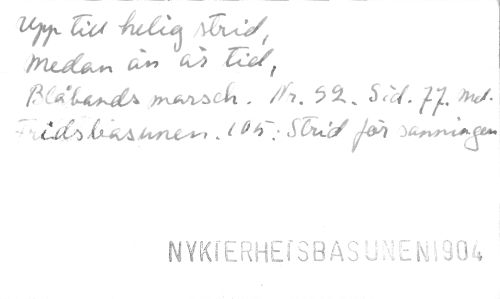 Upp till helig strid,
medan än är tid,
Blåbands marsch. Nr. 52. Sid. 77. md.
Fridsbasunen. 105: Strid för sanningen
NYKTERHETSBASUNEN 1904